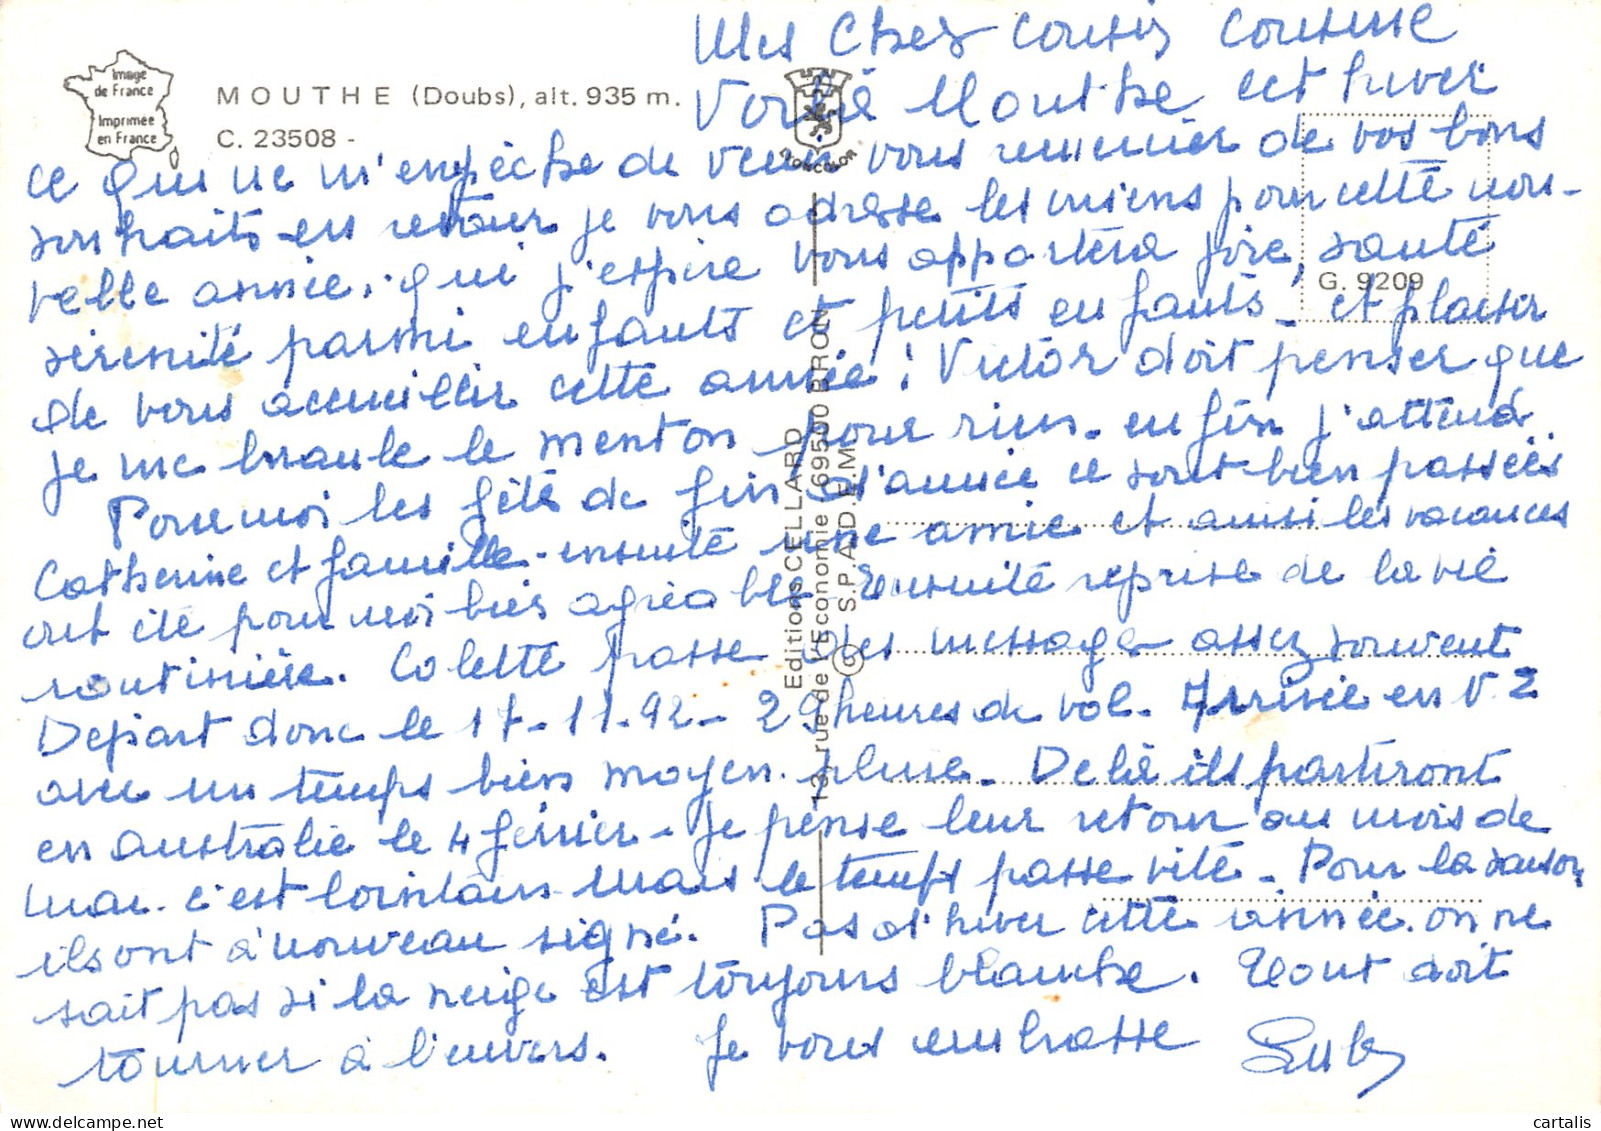 Image
de France
Imprimée
en France
MOUTHE (Doubs), alt. 935 m.
C. 23508 -
LYONCOLOR
G. 9209
Editions CELLARD
13, rue de l'Economie 69500 BRON
S.P.A.D.E.M.
Mes Chers Cousin Cousine
Mouthe cet hiver
ce qui ne m'empêche de venir vous remercier de vos bons
souhaits en retour je vous adresse les miens pour cette nou-
velle année. qui j'espère vous apportera joie, santé
sérénité parmi enfants et petits enfants - et plaisir
de vous accueillir cette année ! Victor doit penser que
je me branle le menton pour rien. enfin j'attend
Pour moi les fêtes de fin d'année ce sont bien passées
Catherine et famille - ensuite une amie et aussi les vacances
ont été pour moi bien agréables - Ensuite reprise de la vie
routinière. Colette passe des messages assez souvent
Depart donc le 17-11-92 - 29 heures de vol. Arrivée en N.Z
avec un temps bien moyen. pluie - De là ils partiront
en australie le 4 février - Je pense leur retour au mois de
mai. c'est lointain mais le temps passe vite - Pour la saison
ils ont à nouveau signé. Pas d'hiver cette année. on ne
sait pas si la neige est toujours blanche. Tout doit
tourner à l'envers. Je vous embrasse